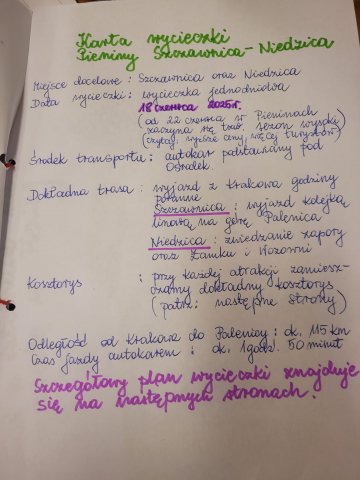 Karta wycieczki
Pieniny Szczawnica - Niedzica
Miejsce docelowe : Szczawnica oraz Niedzica
Data wycieczki : wycieczka jednodniowa
18 czerwca 2025r.
(od 22 czerwca w Pieninach
zaczyna się tzw. sezon wysoki
(czytaj: wyższe ceny, więcej turystów)
Środek transportu : autokar podstawiany pod
Ośrodek.
Dokładna trasa : wyjazd z Krakowa godziny
poranne
Szczawnica : wyjazd kolejką
linową na górę Palenica
Niedzica : zwiedzanie zapory
oraz Zamku i Wozowni
Kosztorys : przy każdej atrakcji zamiesz-
czamy dokładny kosztorys
(patrz: następne strony)
Odległość od Krakowa do Palenicy : ok. 115 km
Czas jazdy autokarem : ok. 1 godz. 50 minut
Szczegółowy plan wycieczki znajduje
się na następnych stronach.